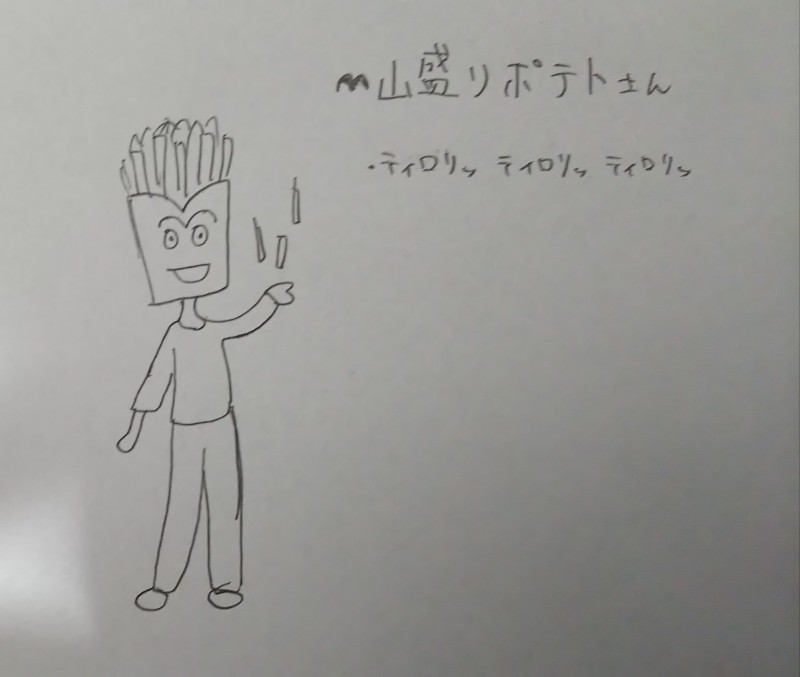 山盛りポテトさん
・ティロリッ ティロリッ ティロリッ